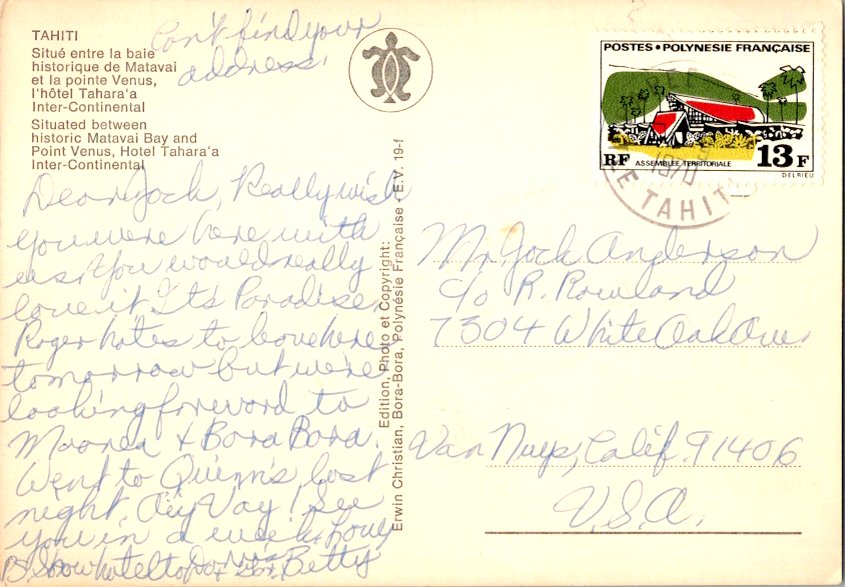 TAHITI
Situé entre la baie
historique de Matavai
et la pointe Venus,
l'hôtel Tahara'a
Inter-Continental
Situated between
historic Matavai Bay and
Point Venus, Hotel Tahara'a
Inter-Continental
Can't find your
address.
Dear Jock, Really wish
you were here with
us. You would really
love it. It's Paradise.
Roger hates to leave here
tomorrow but were
looking foreword to
Moorea & Bora Bora.
Went to Quinn's last
night. Oiy Vay! See
you in a week. Love
Betty
Edition, Photo et Copyright:
Erwin Christian, Bora-Bora, Polynésie Française. E.V. 19-f
POSTES • POLYNESIE FRANÇAISE
RF ASSEMBLEE TERRITORIALE 13F
DELRIEU
1970
ILE TAHITI
Mr. Jock Anderson
c/o R. Rowland
7304 White Oak Ave.
Van Nuys, Calif. 91406
U.S.A.